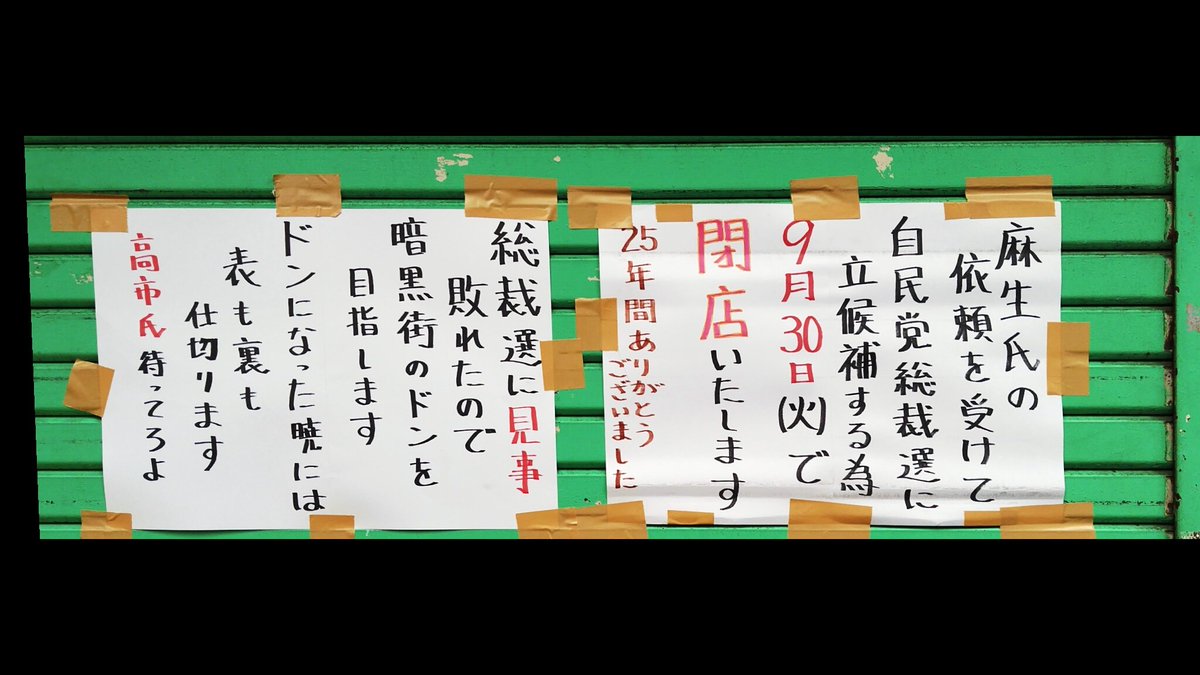 麻生氏の
依頼を受けて
自民党総裁選に
立候補する為
9月30日(火)で
閉店いたします
25年間ありがとう
ございました
総裁選に見事
敗れたので
暗黒街のドンを
目指します
ドンになった暁には
表も裏も
仕切ります
高市氏待ってろよ